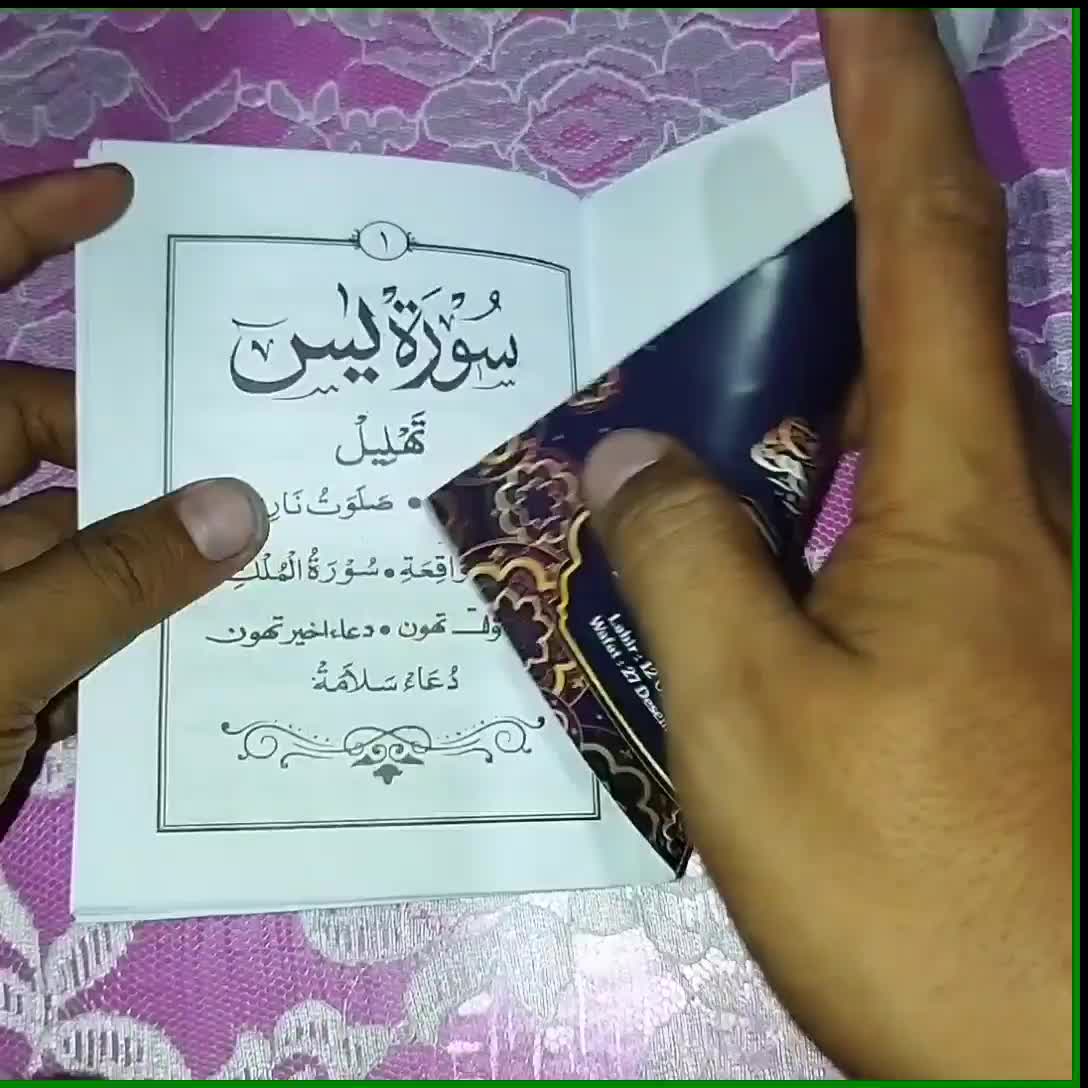 ١
سُوْرَةْ يٰسٓ
تَهْلِيْلْ
• صَلَوَتْ نَارِ
وَاقِعَةِ • سُوْرَةُ الْمُلْكِ
تهون • دعاء اخير تهون
دُعَاءْ سَلَامَةْ
Lahir : 12
Wafat : 27 Desem